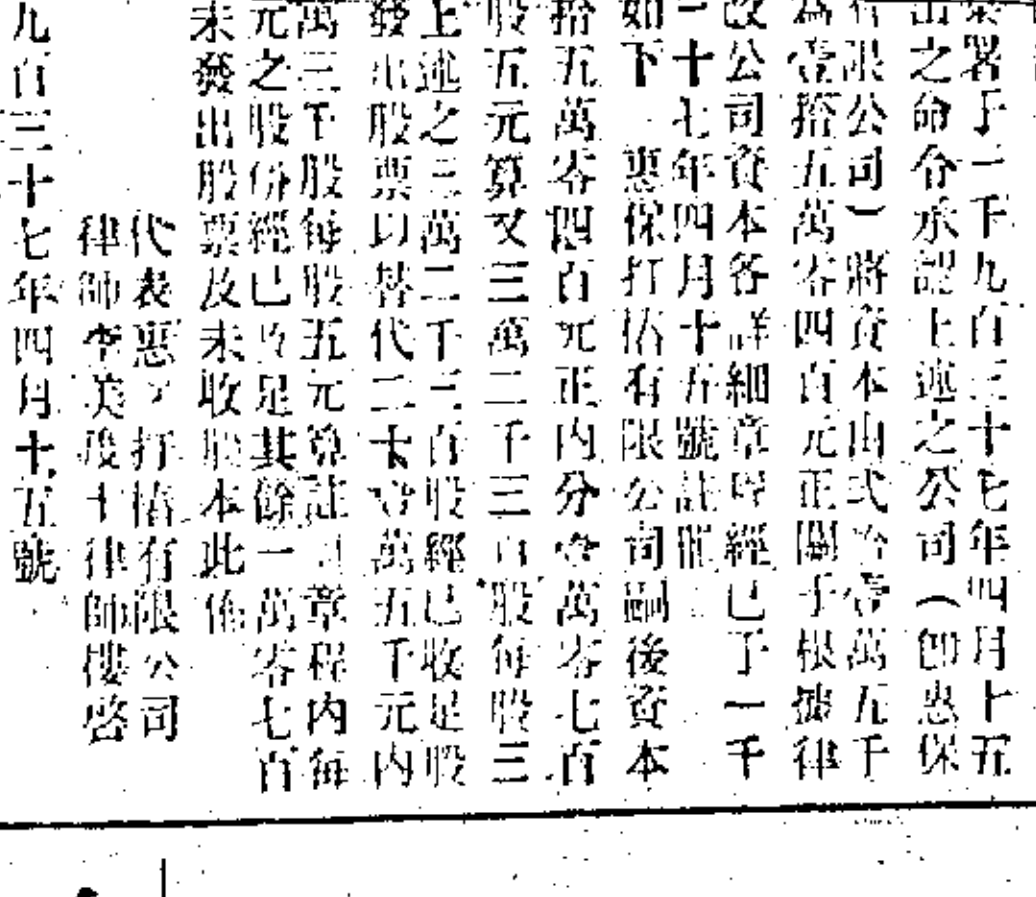 署于一千九百三十七年四月十五
出之命令承認上述之公司(卽惠保
有限公司)將資本由弍拾壹萬五千
為壹拾五萬零四百元正關于根據律
改公司資本各詳細章程經已于一千
三十七年四月十五號註冊
如下 惠保打㕆有限公司嗣後資本
拾五萬零四百元正內分壹萬零七百
股五元算又三萬二千三百股每股三
上述之三萬二千三百股經已收足股
發出股票以替代二十壹萬五千元內
萬三千股每股五元算註 章程內每
元之股份經已收足其餘一萬零七百
未發出股票及未收股本此佈
代表惠 打 有限公司
律師李美 士律師樓啓
九百三十七年四月十五號